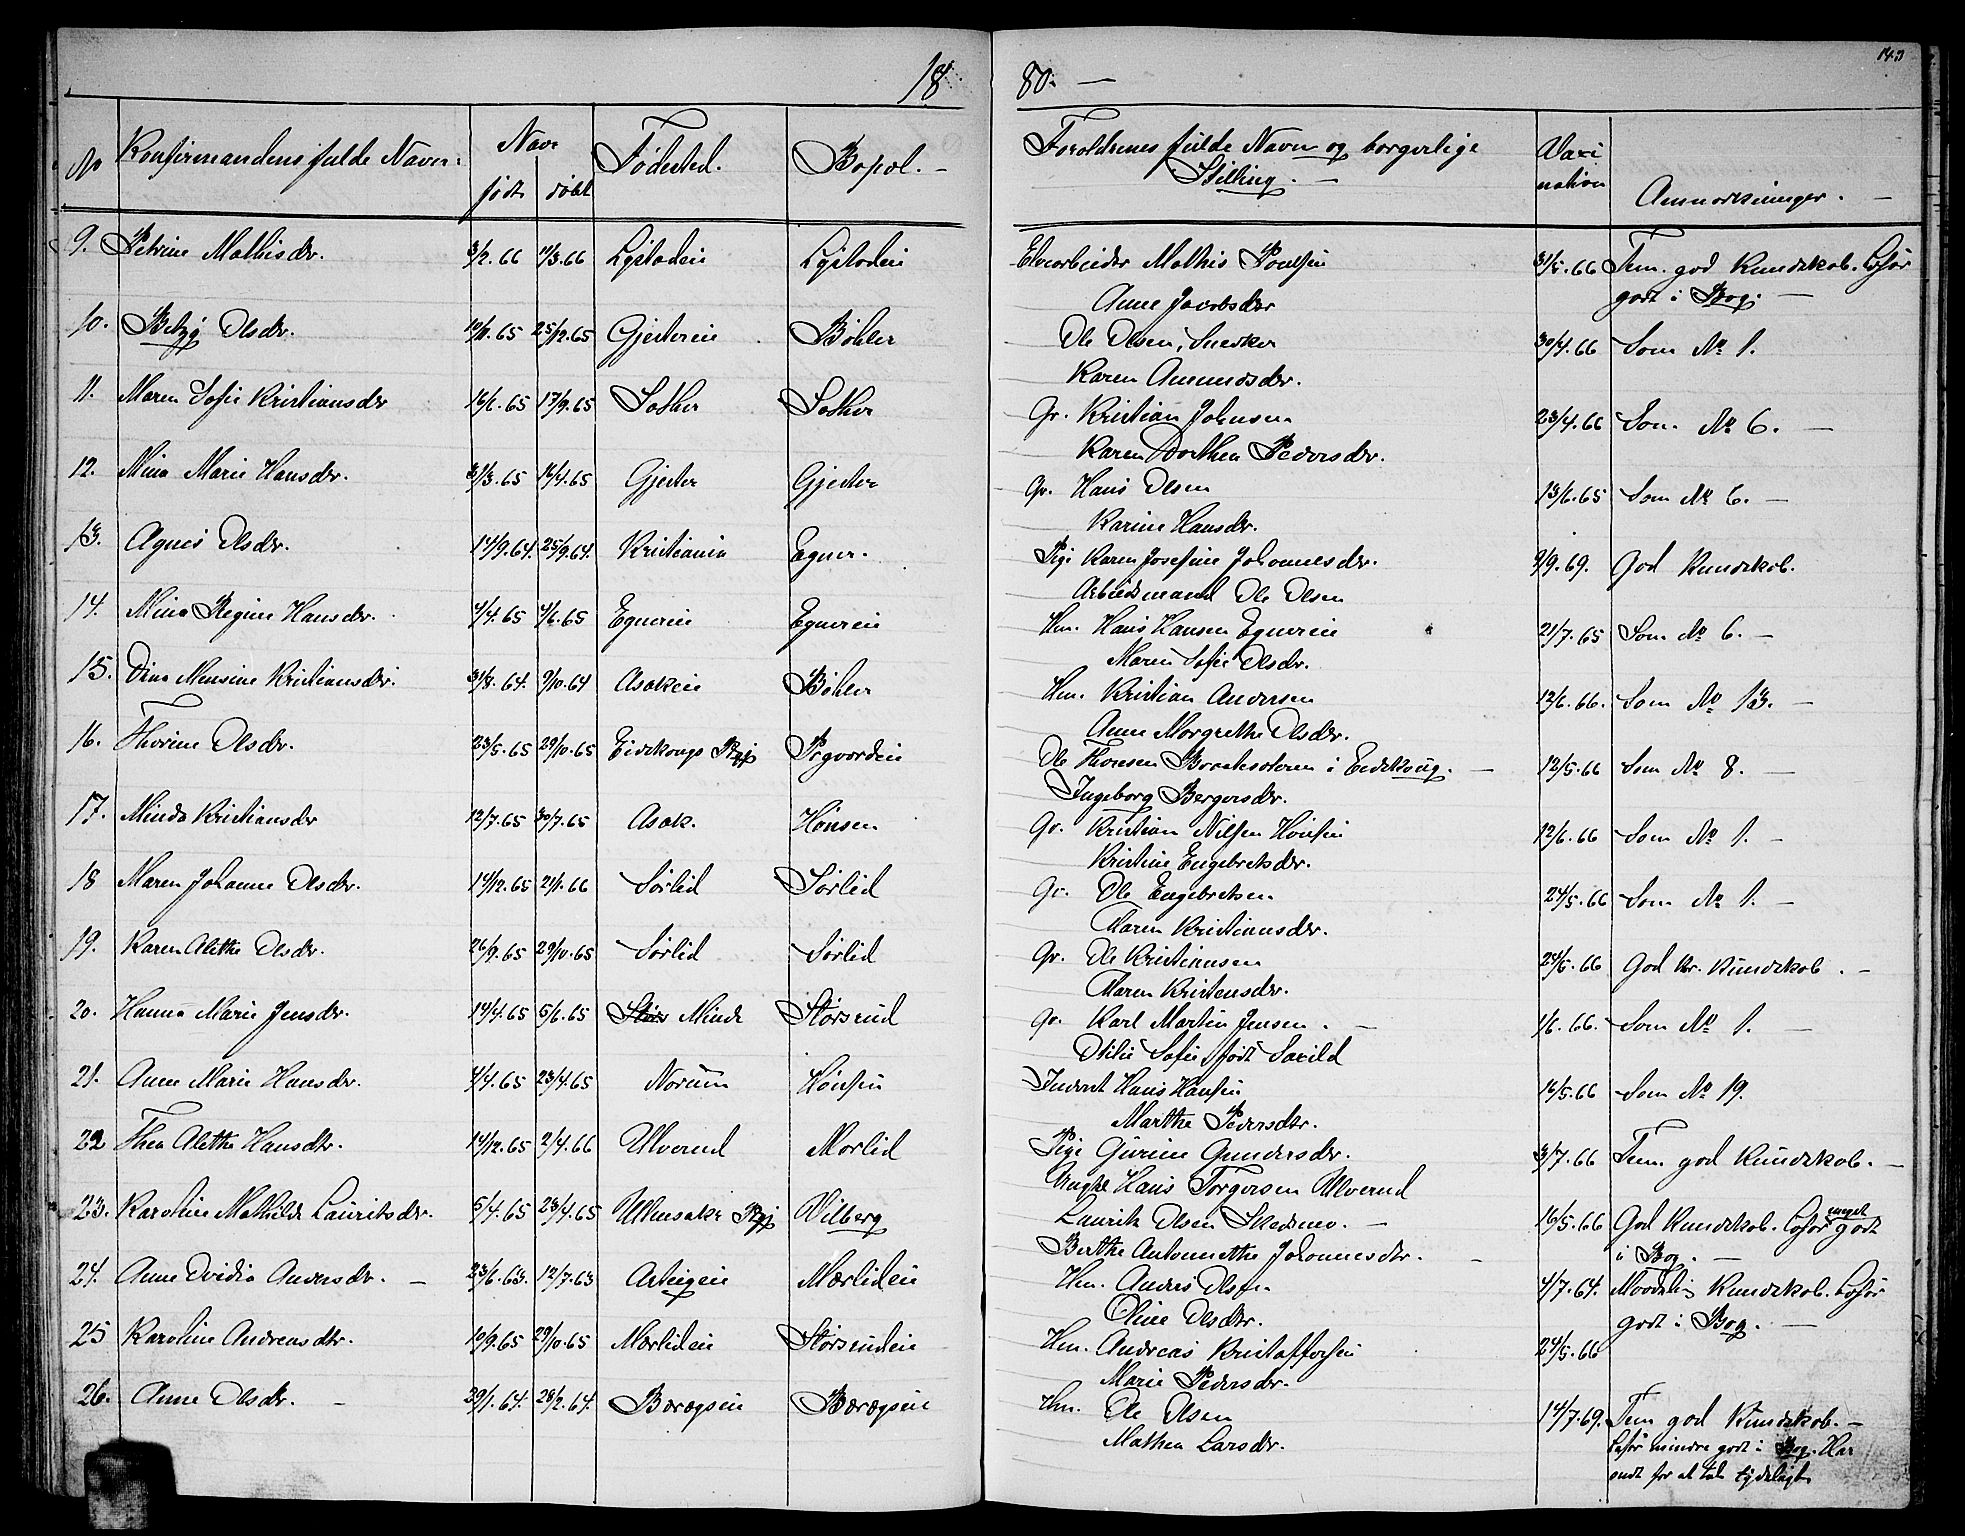 18
80. —
143
No Konfirmandens fulde Navn. Naar Fødested. Bopæl. — Forældrenes fulde Navn og borgerlige Vaxi
født døbt Stilling. — nation Anmærkninger. —
9. Petrine Mathisdr. 3/2.66 11/3.66 Lystadeie Lystadeie Elvearbeider Mathis Poulsen 31/5.66 Tem. god Kundskab. Læser
Anne Jacobsdr godt i Bog. —
10. Betzy Olsdr. 25/12.65 Gjestereie Bøhler Ole Olsen, Snedker 30/4.66 Som No 1.
Karen Amundsdr.
11. Maren Sofie Kristiansdr 16/6.65 17/9.65 Sother Sother Gr. Kristian Johnsen 23/4.66 Som No 6. —
Karen Dorthea Pedersdr.
12. Mina Marie Hansdr. 31/3.65 16/4.65 Gjester Gjester Gr. Hans Olsen 13/6.65 Som No 6. —
Karine Hansdr.
13. Agnes Olsdr. 14/9.64. 25/9.64. Kristiania Egner. Pige Karen Josefine Johannesdr. 9/9.69. God Kundskab.
Arbeidsmand Ole Olsen
14. Mina Regine Hansdr. 4/4.65 4/6.65 Egnereie Egnereie Hm. Hans Hansen Egnereie 21/7.65 Som No 6. —
Maren Sofie Olsdr.
15. Dina Mensine Kristiansdr. 31/8.64. 9/10.64 Asakeie Bøhler Hm. Kristian Andersen 12/6.66. Som No 13. —
Anne Margrethe Olsdr.
16. Thorine Olsdr. 23/5.65 29/10.65 Eidskogs Pgj Prgaardeie Ole Thonesen i Eidskoug. — 12/5.66 Som No 8. —
Ingeborg Bergersdr.
17. Minda Kristiansdr 12/7.65 30/7.65 Asak. Hønsen Gr. Kristian Nilsen Hønsen 12/6.66 Som No 1. —
Kristine Engebretsdr.
18 Maren Johanne Olsdr. 14/12.65 21/1.66 Sørlid Sørlid Gr. Ole Engebretsen 24/5.66 Som No 1. —
Maren Kristiansdr.
19. Karen Alette Olsdr. 26/9.65 29/10.65 Sørlid Sørlid Gr. Ole Kristiansen 24/5.66 God Kr. Kundskab. —
Maren Kristensdr.
20. Hanna Marie Jensdr. 14/4.65 5/6.65 Minde Størsrud Gr. Karl Martin Jensen. — 1/6.66. Som No 1. —
Otilie Sofie født Saxild
21. Anne Marie Hansdr. 4/4.65 23/4.65 Norum Hønsen Inderst Hans Hansen 16/5.66 Som No 19.
Marthe Pedersdtr.
22 Thea Alette Hansdtr. 14/12.65 2/4.66 Ulverud Mørlid Pige Gurine Gundersdr. 3/7.66 Tem. god Kundskab. —
Ungkl Hans Torgersen Ulverud
23. Karoline Mathilde Lauritsdr. 5/4.65 23/4.65 Ullensaker Pgj Wilberg Laurits Olsen Skedsmo. — 16/5.66 God Kundskab. Læser meget godt
Berthe Antonnette Johannesdtr. — i Bog. —
24. Anne Ovidia Andersdr. — 23/6.63. 12/7.63 Arteigeie Mærlideie Hm. Anders Olsen 4/7.64. Maadelig Kundskab. Læser
Oline Olsdtr. godt i Bog. —
25 Karoline Andreasdtr. 10/9.65 29/10.65 Mærlideie Størsrudeie Hm. Andreas Kristoffersen 24/5.66
Marie Pedersdr.
26. Anne Olsdr. — 29/1.64. 28/2.64. Boregseie Boregseie Hm. Ole Olsen 14/7.69. Tem god Kundskab. —
Mathea Larsdr. Læser mindre godt i Bog. Har
ondt for at tale tydeligt